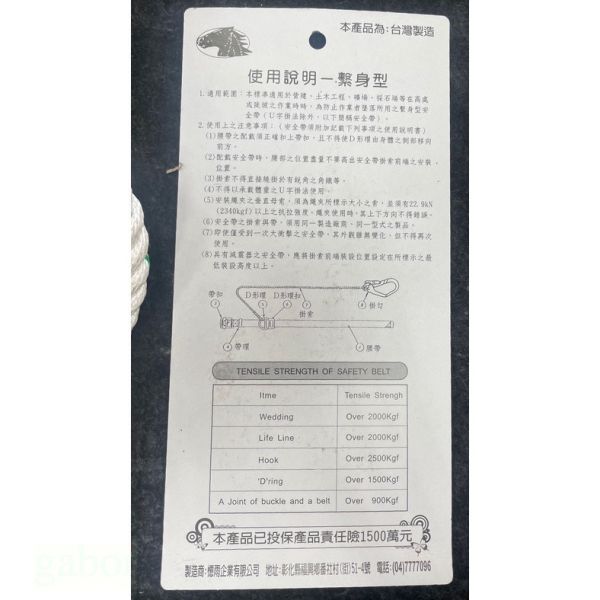 本產品為:台灣製造
使用說明—繫身型
1.適用範圍:本標準適用於營建、土木工程、礦場、採石場等在高處
或陡坡之作業時時,為防止作業者墜落所用之繫身型安
全帶(U字掛法除外,以下簡稱安全帶)。
2.使用上之注意事項:(安全帶須附加記載下列事項之使用說明書)
(1)腰帶之配戴須正確扣上帶扣,且不得使D形環由身體之側部移向
前方。
(2)配戴安全帶時,腰部之位置盡量不要高出安全帶掛索前端之安裝
位置。
(3)掛索不得直接繞掛於有銳角之角鐵等。
(4)不得以承載體重之U字掛法使用。
(5)安裝繩夾之垂直母索,須為繩夾所標示大小之索,並須有22.9kN
(2340kgf)以上之抗拉強度。繩夾使用時,其上下方向不得錯誤。
(6)安全帶之掛索與帶,須用同一製造廠商、同一型式之製品。
(7)即使僅受到一次大衝擊之安全帶,其外觀雖無變化,但不得再次
使用。
(8)具有減震器之安全帶,應將掛索前端裝設位置設定在所標示之最
低裝設高度以上。
帶扣 D形環 D形環扣 掛索 掛勾
帶環 腰帶
TENSILE STRENGTH OF SAFETY BELT
Itme Tensile Strengh
Wedding Over 2000Kgf
Life Line Over 2000Kgf
Hook Over 2500Kgf
'D'ring Over 1500Kgf
A Joint of buckle and a belt Over 900Kgf
本產品已投保產品責任險1500萬元
製造商:櫻雨企業有限公司 地址:彰化縣福興鄉番社村(街)51-4號 電話:(04)7777096
gabo